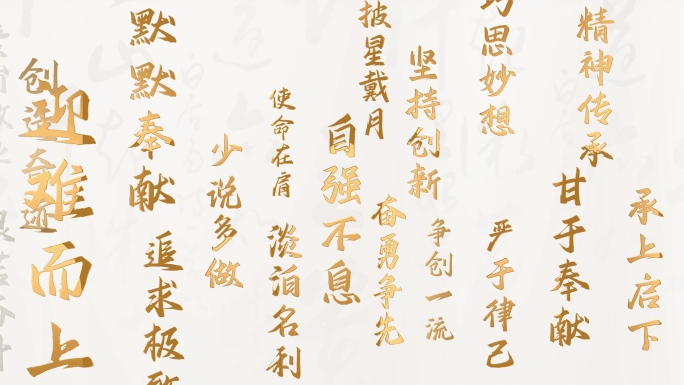 创造奇迹
迎难而上
默默奉献
追求极致
少说多做
使命在肩
淡泊名利
自强不息
披星戴月
奋勇争先
坚持创新
争创一流
巧思妙想
严于律己
精神传承
甘于奉献
承上启下